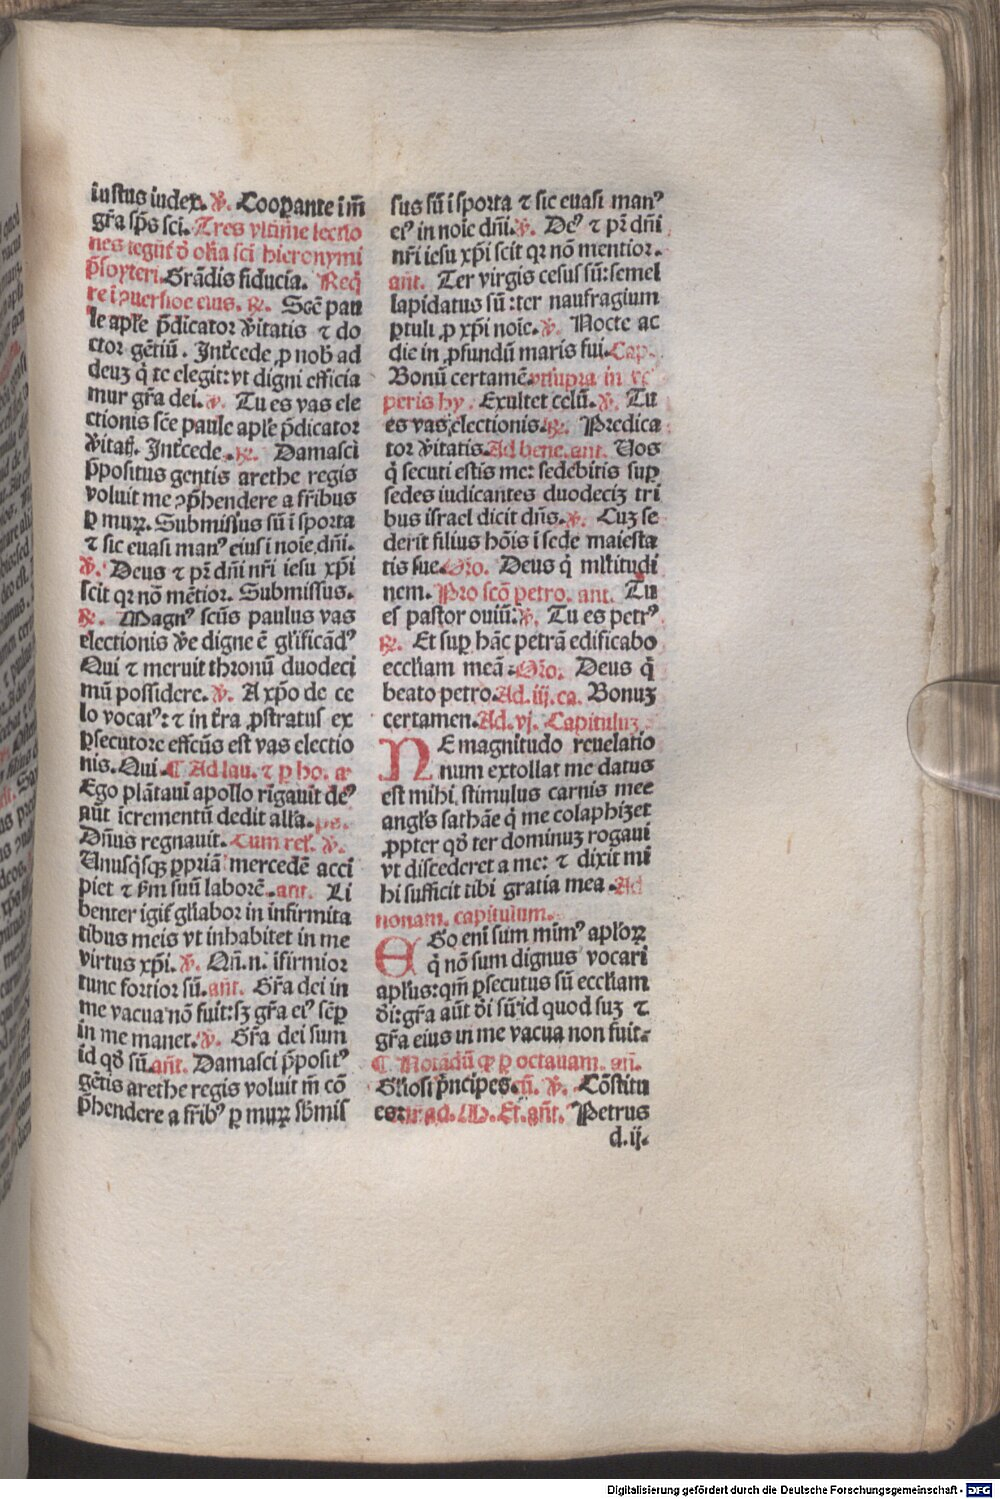 iustus iudex. ℣. Coopante i m̄
gr̄a sp̄s sci. Tres vltim̄e lectio
nes legūt᷑ ð om̄ia sci hieronymi
p̄sbyteri. Grādis fiducia. Req̄
re i ꝯuersioe eius. ℟. Sc̄e pau
le apl̄e p̄dicator v̄itatis ⁊ do
ctor gētiū. Int̄cede ꝓ nob̄ ad
deuʒ q̄ te elegit: vt digni efficia
mur gr̄a dei. ℣. Tu es vas ele
ctionis sc̄e paule apl̄e p̄dicator
v̄itat̄. Int̄cede. ℟. Damasci
p̄positus gentis arethe regis
voluit me ꝯp̄hendere a fr̄ibus
ꝑ muꝝ. Submissus sū i sporta
⁊ sic euasi manꝰ eius i noīe dn̄i.
℣. Deus ⁊ pr̄ dn̄i nr̄i iesu xp̄i
scit qꝛ nō mētior. Submissus.
℟. Magnꝰ sc̄us paulus vas
electionis v̄e digne ē gl̄ificādꝰ
Qui ⁊ meruit thronū duodeci
mū possidere. ℣. A xp̄o de ce
lo vocatꝰ: ⁊ in t̄ra ꝓstratus ex
ꝑsecutore effcūs est vas electio
nis. Qui. ¶ Ad lau. ⁊ ꝑ ho. a͞
Ego plātaui apollo rigauit deꝰ
aūt icrementū dedit all̄a. ps.
Dn̄us regnauit. Cum rel̄. ℣.
Vnusq̄sqꝫ ꝓpriā mercedē acci
piet ⁊ s̄m suū laborē. ant. Li
benter igit᷑ gl̄iabor in infirmita
tibus meis vt inhabitet in me
virtus xp̄i. ℣. Qn̄. n. ifirmior
tunc fortior sū. ant̄. Gr̄a dei in
me vacua nō fuit: sʒ gr̄a eiꝰ sēꝑ
in me manet. ℣. Gr̄a dei sum
id qð sū. ant̄. Damasci p̄positꝰ
gētis arethe regis voluit m̄ cō
p̄hendere a fr̄ibꝰ ꝑ muꝝ sb̄mis
sus sū i sporta ⁊ sic euasi manꝰ
eiꝰ in noīe dn̄i. ℣. Deꝰ ⁊ pr̄ dn̄i
nr̄i iesu xp̄i scit qꝛ nō mentior.
ant̄. Ter virgis cesus sū: semel
lapidatus sū: ter naufragium
ꝑtuli ꝓ xp̄i noīe. ℣. Nocte ac
die in ꝓfundū maris fui. Cap.
Bonū certamē. vt supra in ve
peris hy. Exultet celū. ℣. Tu
es vas electionis. ℟. Predica
tor v̄itatis. Ad bene. ant. Uos
q̄ secuti estis me: sedebitis suꝑ
sedes iudicantes duodeciʒ tri
bus israel dicit dn̄s. ℣. Cuʒ se
derit filius hōis i sede maiesta
tis sue. Oro. Deus q̄ ml̄titudi
nem. Pro scō petro. ant. Tu
es pastor ouiū. ℣. Tu es petrꝰ
℟. Et suꝑ hāc petrā edificabo
eccl̄iam meā. Oro. Deus q̄
beato petro. Ad. iij. ca. Bonuʒ
certamen. Ad. vj. Capituluʒ
NE magnitudo reuelatio
num extollat me datus
est mihi stimulus carnis mee
angl̄s sathāe q̄ me colaphiʒet
ꝓpter qð ter dominuʒ rogaui
vt discederet a me: ⁊ dixit mi
hi sufficit tibi gratia mea. Ad
nonam. capitulum.
EGo enī sum mīmꝰ apl̄oꝝ
q̄ nō sum dignus vocari
apl̄us: qm̄ ꝑsecutus sū eccl̄iam
ði: gr̄a aūt ði sū id quod suʒ ⁊
gr̄a eius in me vacua non fuit.
¶ Notādū ꝙ ꝑ octauam. an̄.
Gl̄iosi p̄ncipes. cū. ℣. Cōstitu
es: ad. M. Et. ant̄. Petrus
d.ij.
Digitalisierung gefördert durch die Deutsche Forschungsgemeinschaft - DFG